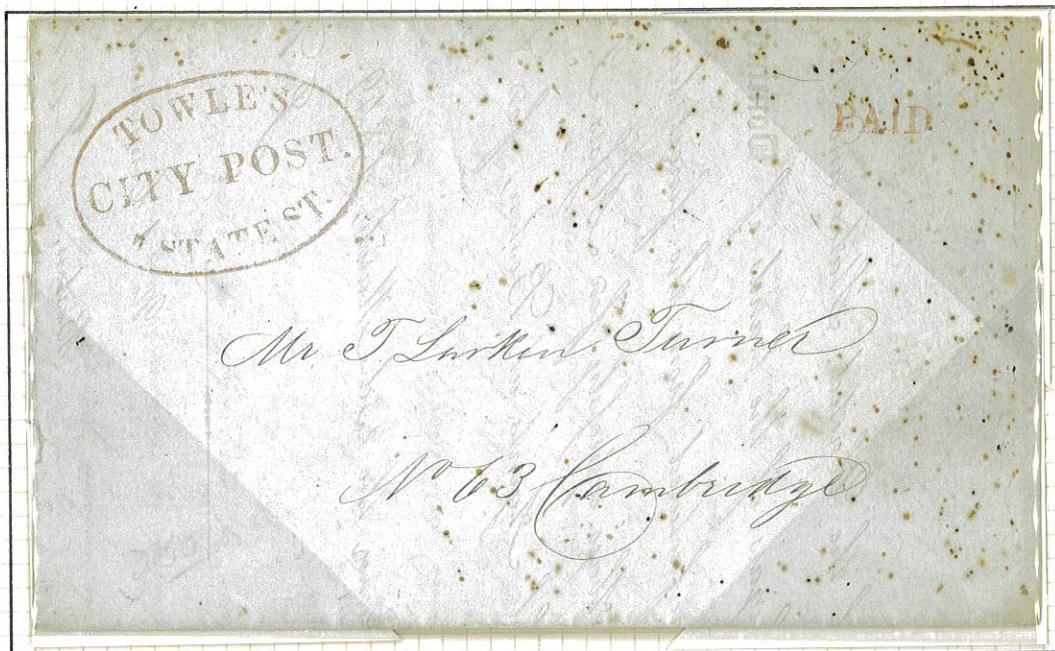 TOWLE'S
CITY POST.
7 STATE ST.
PAID
Mr. T Larkin Turner
No 63 Cambridge